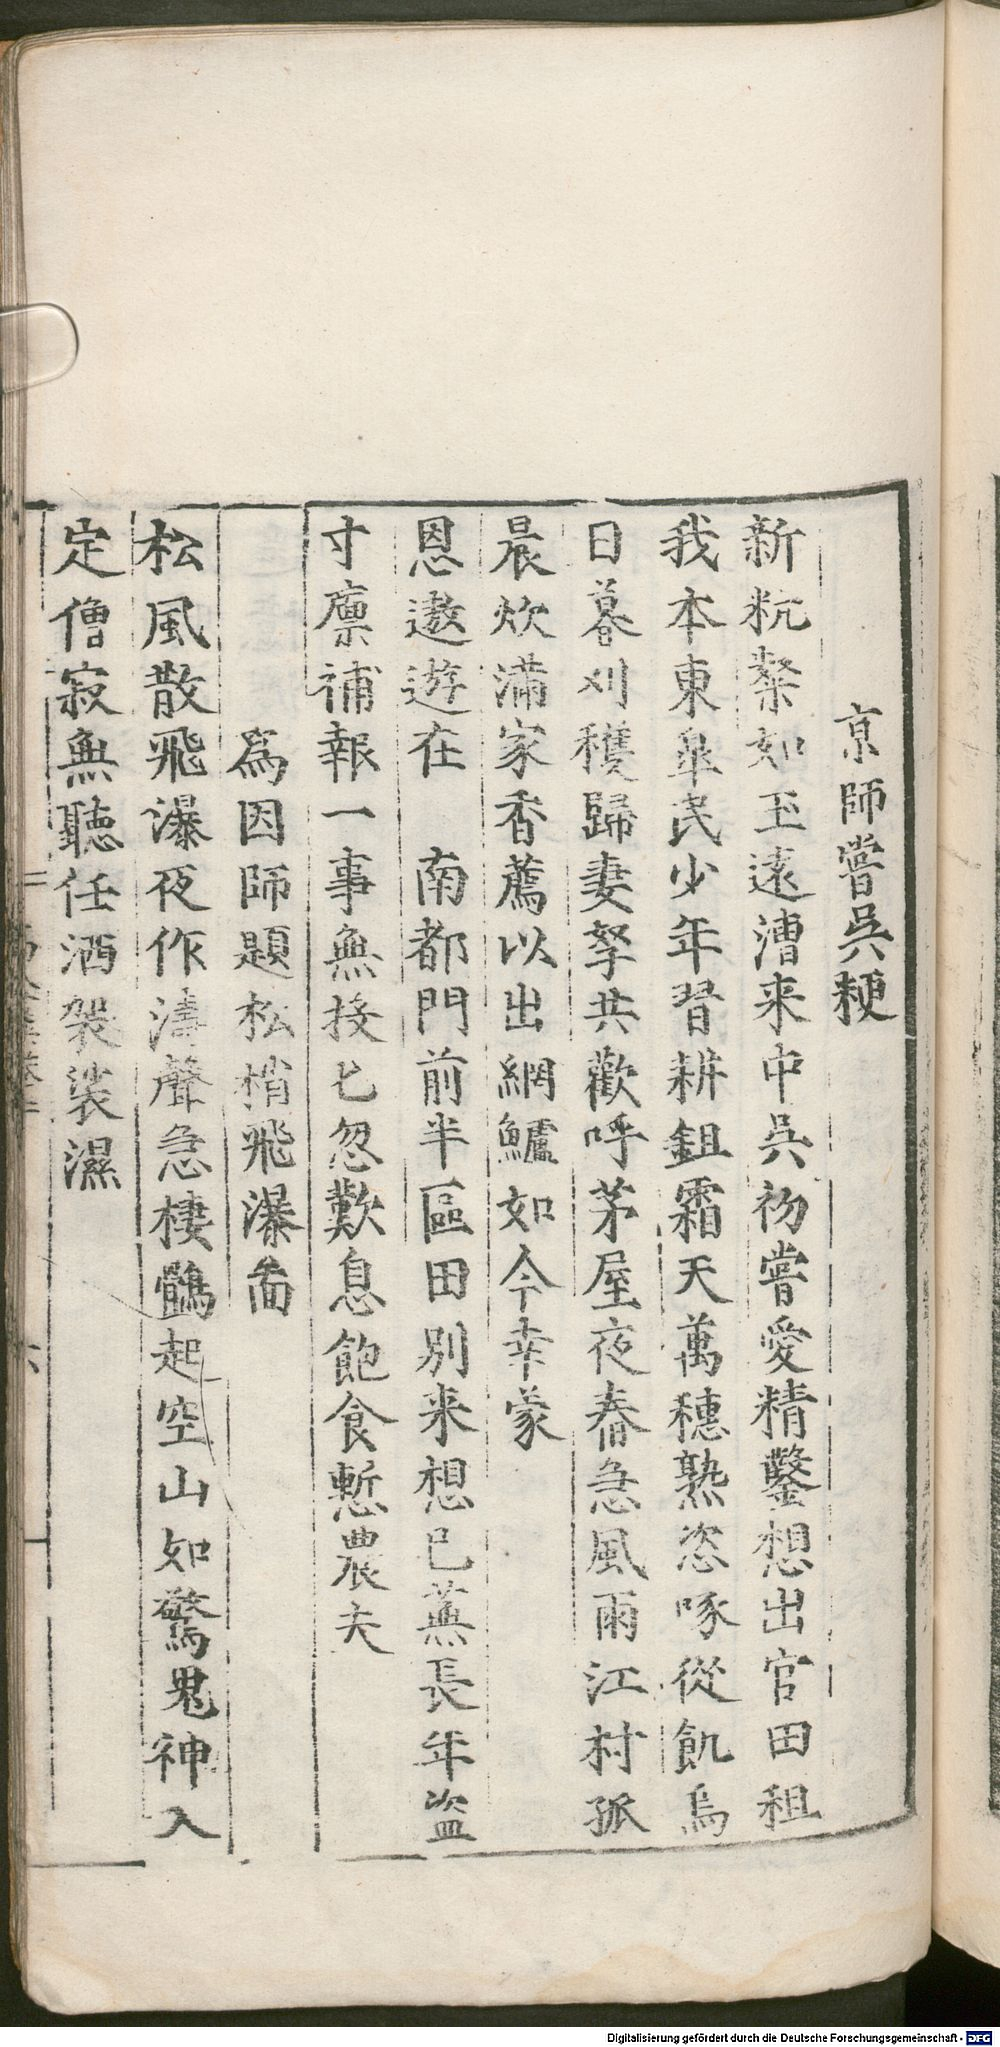 京師嘗吳粳
新粇粲如玉遠漕来中吳初嘗愛精鑿想出官田租
我本東臯民少年習耕鉏霜天萬穗熟恣啄從飢烏
日暮刈穫歸妻孥共歡呼茅屋夜舂急風雨江村孤
晨炊滿家香薦以出網鱸如今幸蒙
恩遨遊在 南都門前半區田別来想已蕪長年盜
寸廩補報一事無投匕忽歎息飽食慙農夫
為因師題松梢飛瀑啚
松風散飛瀑夜作濤聲急棲鶻起空山如驚鬼神入
定僧寂無聽任洒袈裟濕
六
Digitalisierung gefördert durch die Deutsche Forschungsgemeinschaft - DFG